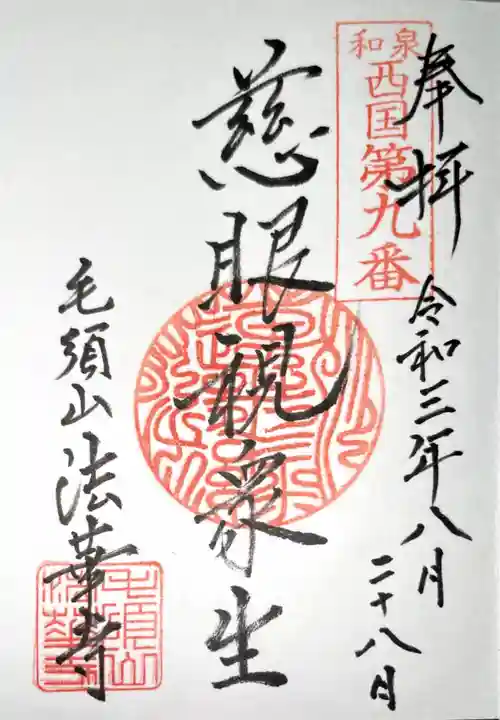 奉拝
令和三年八月
二十八日
和泉
西国第九番
慈眼視衆生
毛須山法華寺